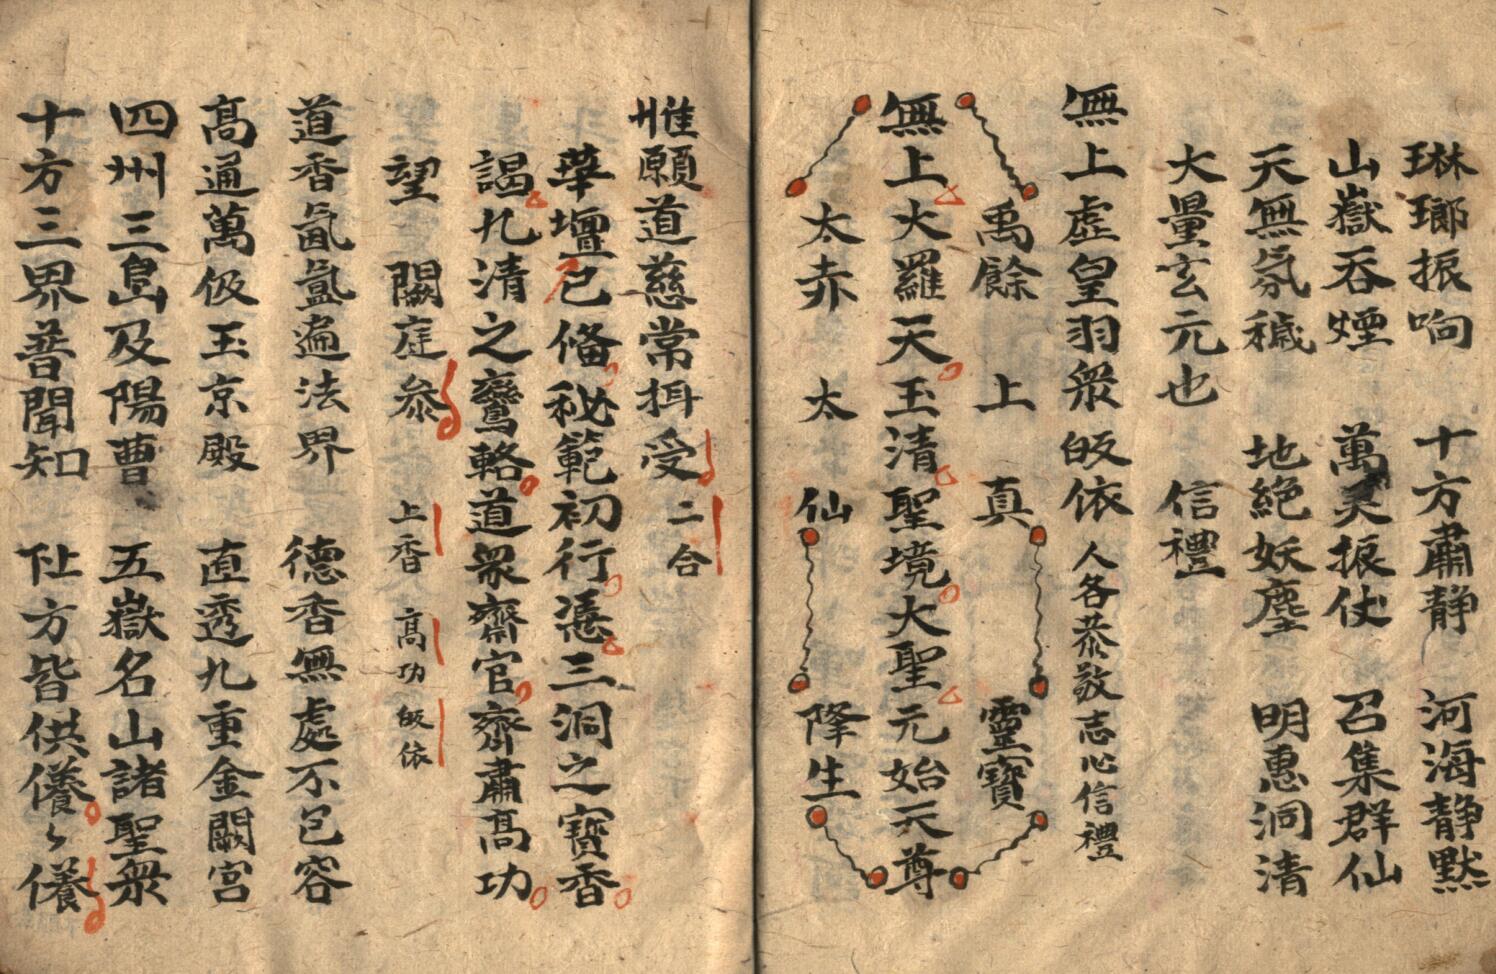 琳瑯振响 十方肅静 河海静默
山嶽吞煙 萬灵振伏 召集群仙
天無氛穢 地絶妖塵 明惠洞清
大量玄元也 信禮
無上虛皇羽衆皈依 人各恭敬志心信禮
禹餘 上 真 靈寶
無上大羅天玉清聖境大聖元始天尊
太赤 太 仙 降生
惟願道慈常揖受 二合
華壇已俻秘範初行憑三洞之寶香
謁九清之鸞輅道衆齋官齊肅高功
望 闕庭叅 上香 高功 皈依
道香氤氳遍法界 德香無處不包容
高通萬伋玉京殿 直透九重金闕宮
四州三島及陽曹 五嶽名山諸聖衆
十方三界普聞知 阯方皆供養々養